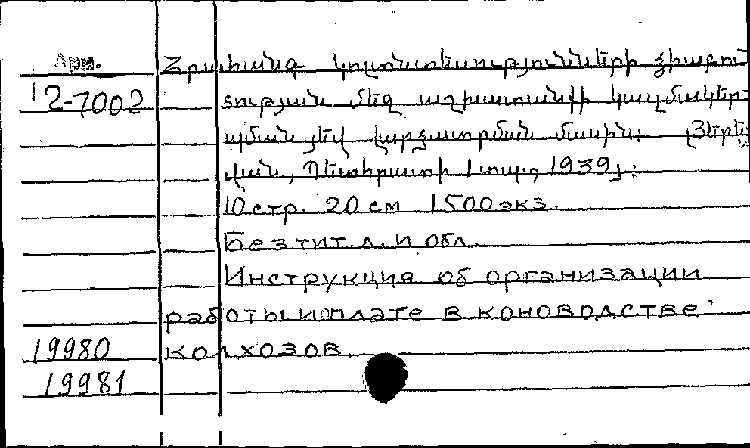 Арм.
Հրահանգ կոլտնտեսությունների ձիաբու-
12-7002
ծության մեջ աշխատանքի կազմակեր-
պման յեվ վարձատրման մասին: Յերե-
վան, Պետհրատի տպ., 1939 թ.:
10 стр. 20 см 1500 экз.
Без тит. л. и обл.
Инструкция об организации
работы и оплате в коноводстве
19980
колхозов.
19981